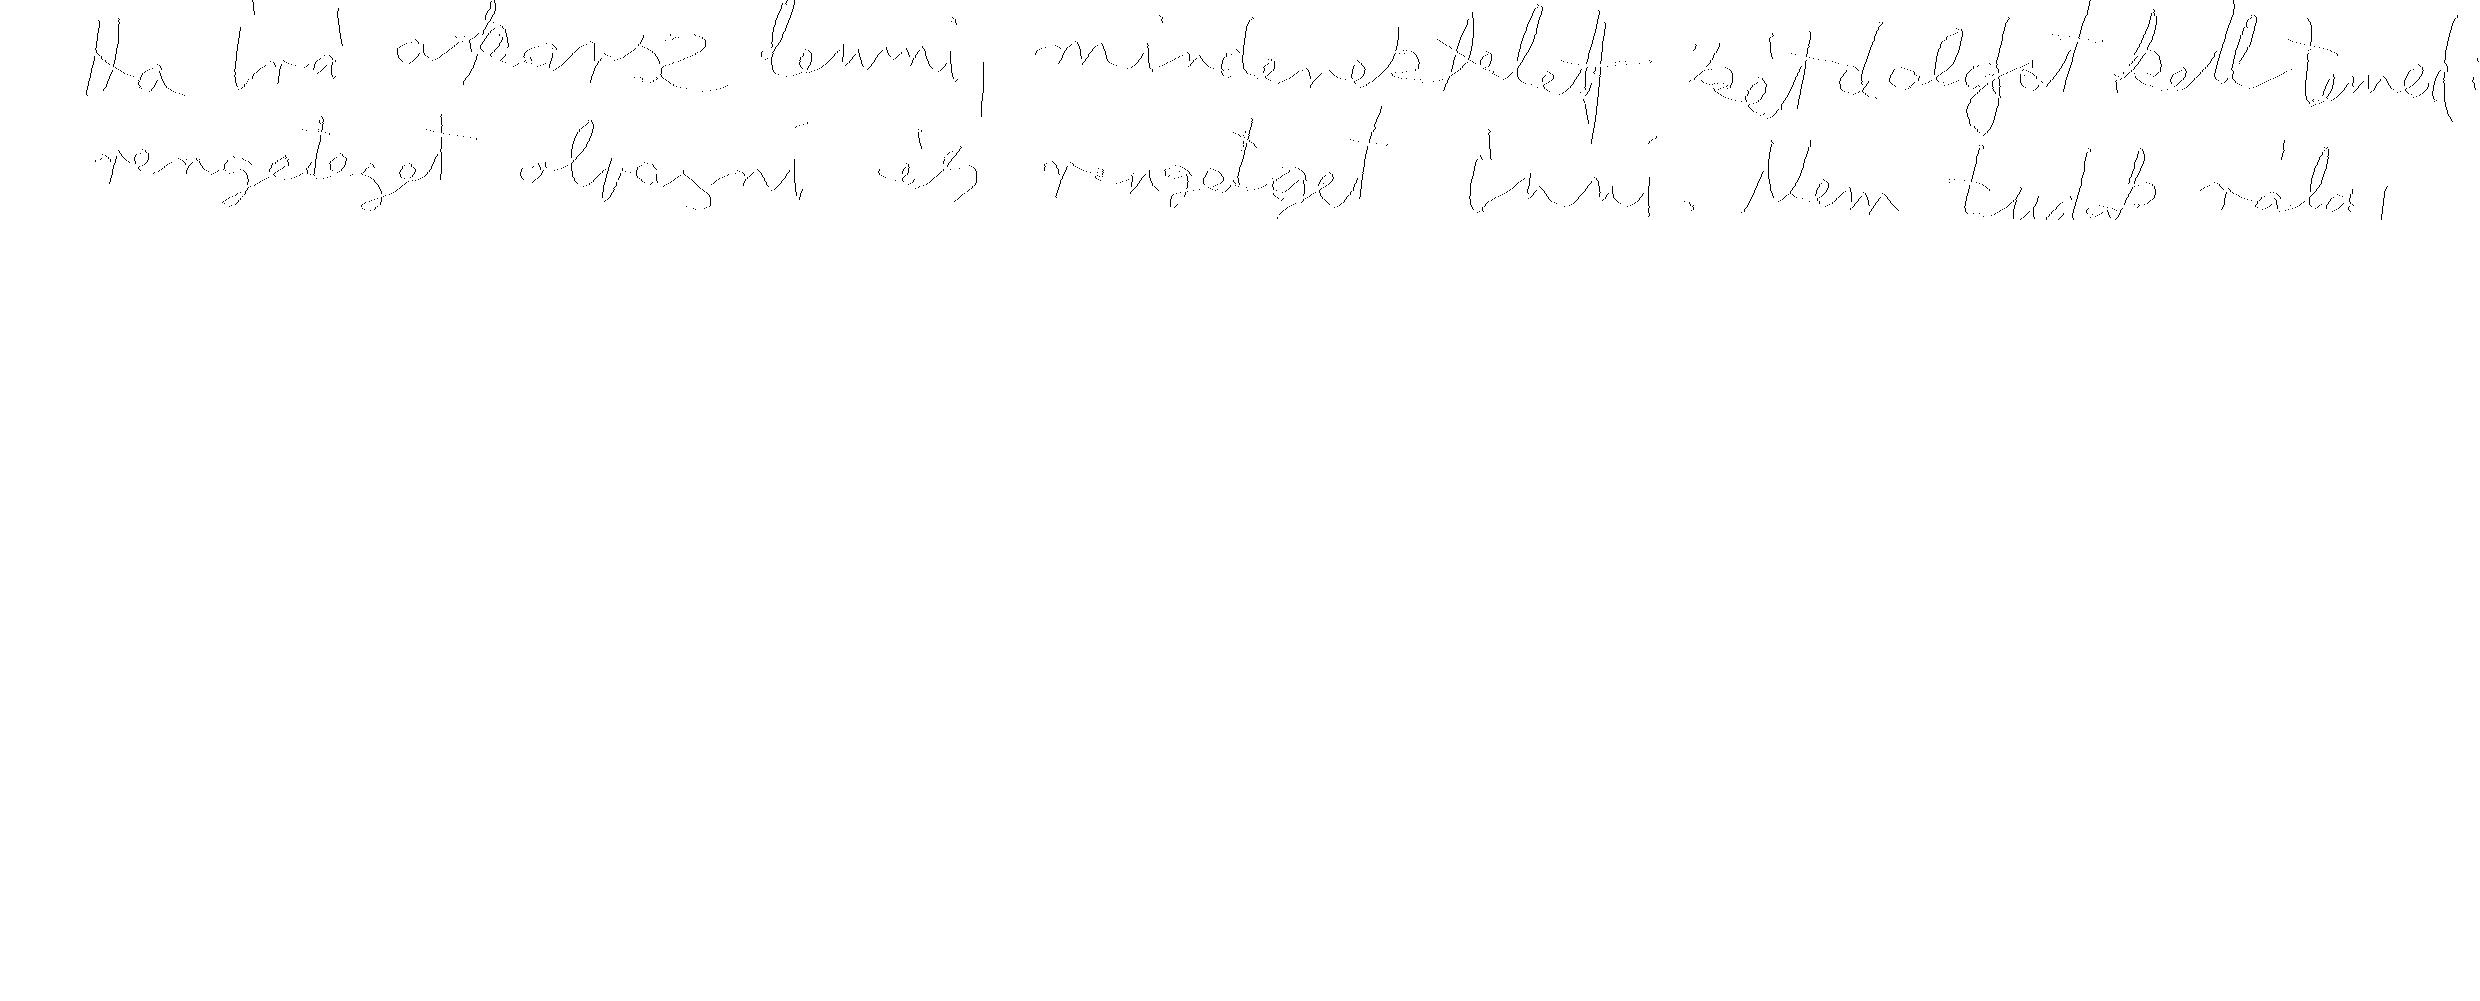 Ha író akarsz lenni, mindenekelőtt két dolgot kell tenned:
rengeteget olvasni és rengeteget írni. Nem tudok róla,